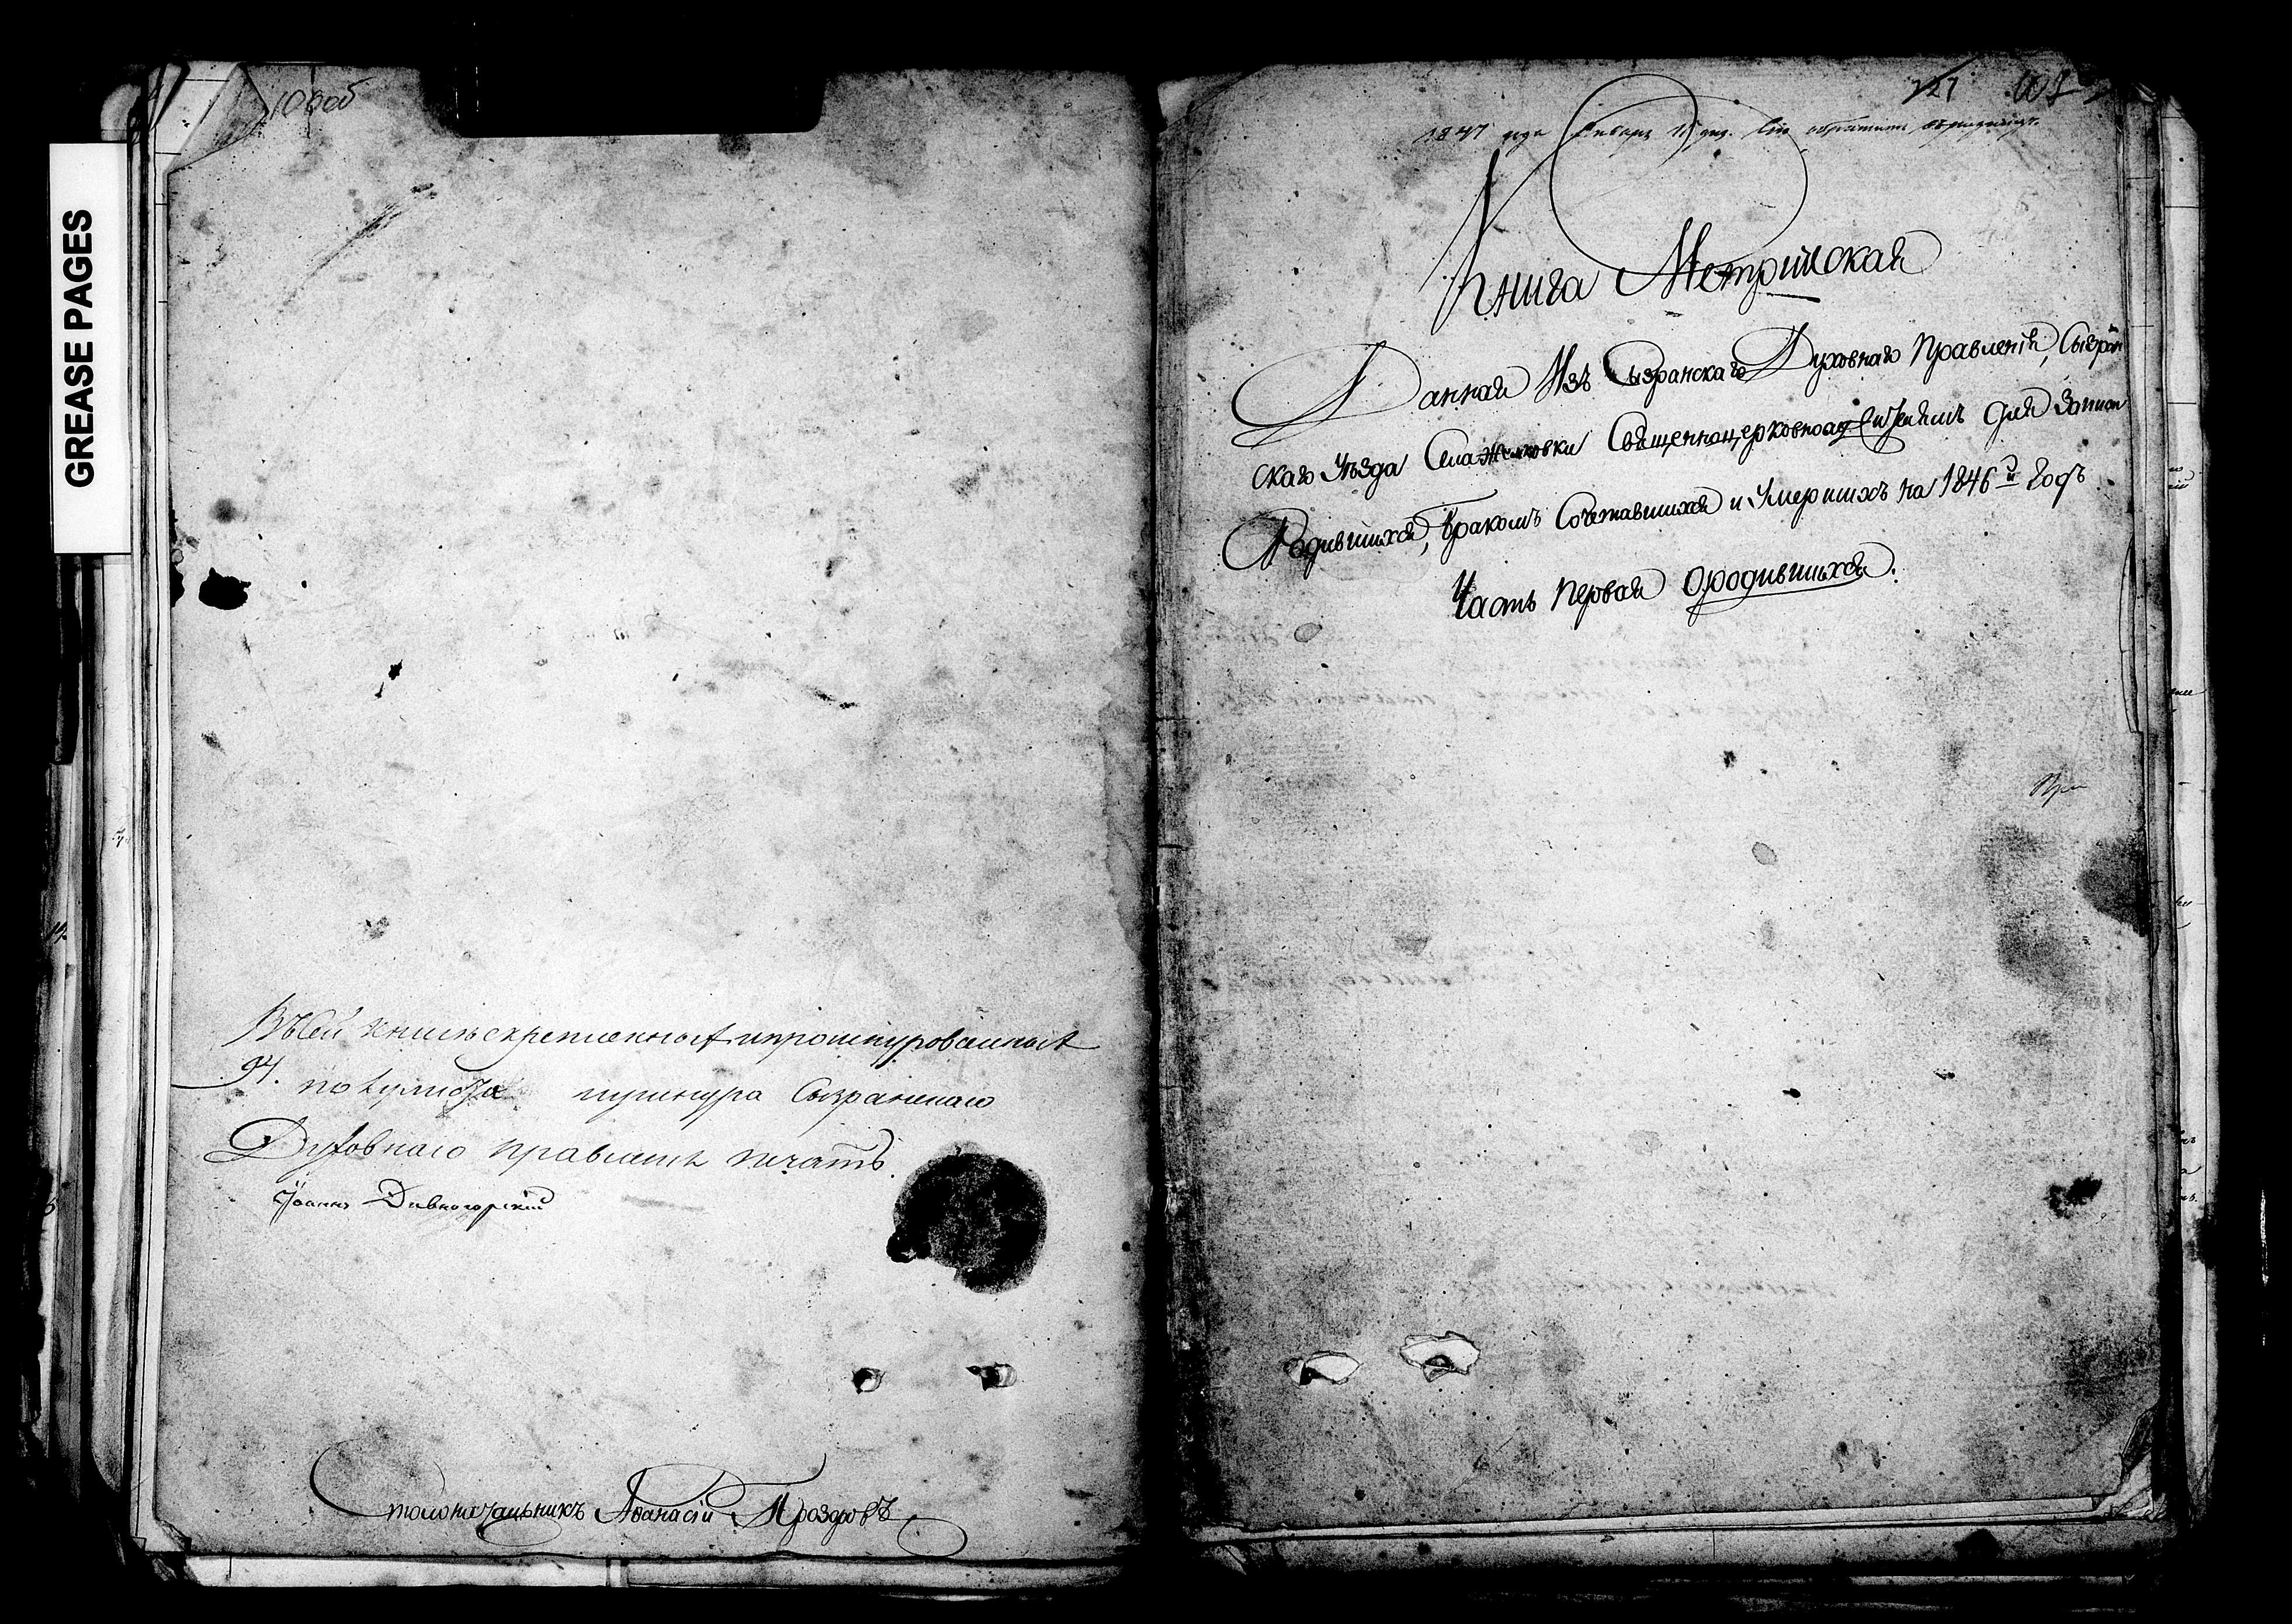 GREASE PAGES
100об
Въ сей книге скрепленныхъ и прошнурованныхъ
94. полулиста пишнура Сызранскаго
Духовнаго правления печать
Іоаннъ Дивногорскій
Столоначальникъ Афанасій Дроздовъ
727 101
1847 года Января 15 дня. Сію
Книга Метрическая
Данная Изъ Сызранскаго Духовнаго Правленія, Сызран
скаго Уѣзда Села Священноцерковнослужителямъ для записи
Родившихся, Бракомъ Сочетавшихся и Умершихъ на 1846й Годъ
Часть Первая О родившихся.
При